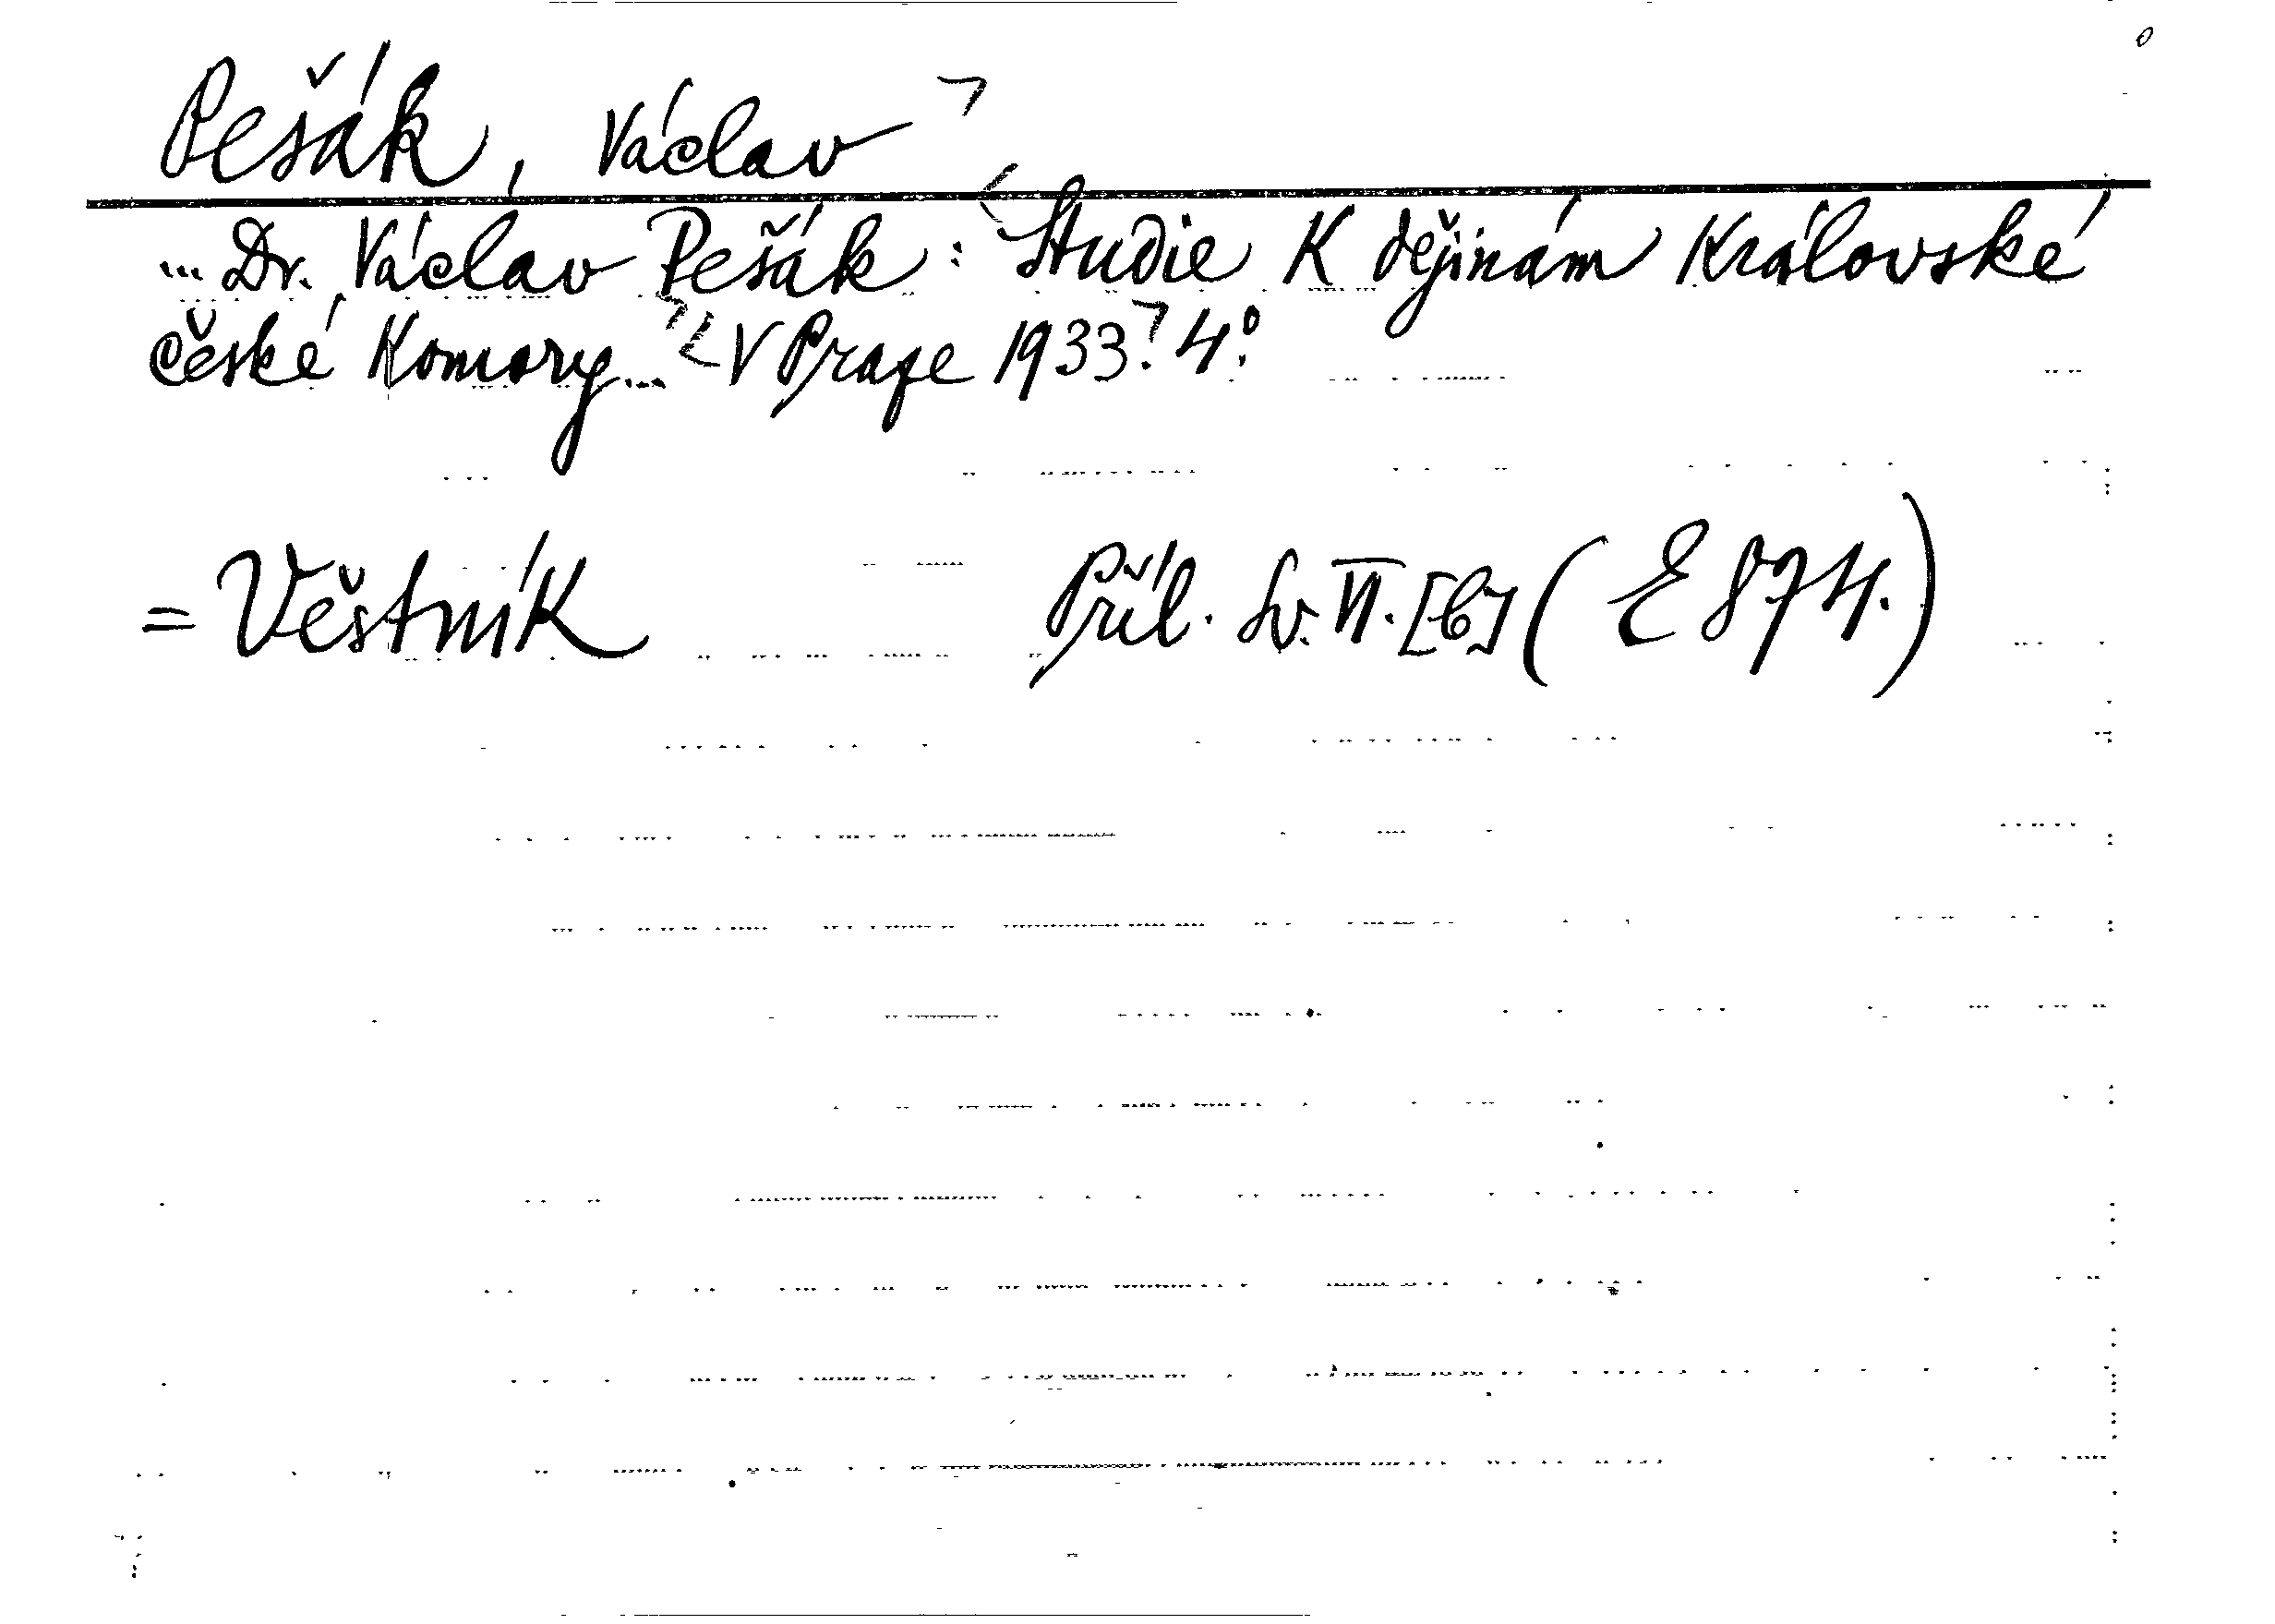 Pešák, Václav
... Dr. Václav Pešák: Studie k dějinám Královské
české komory... V Praze 1933. 4°.
= Věstník Příl. sv. VI. [6] (E 874.)